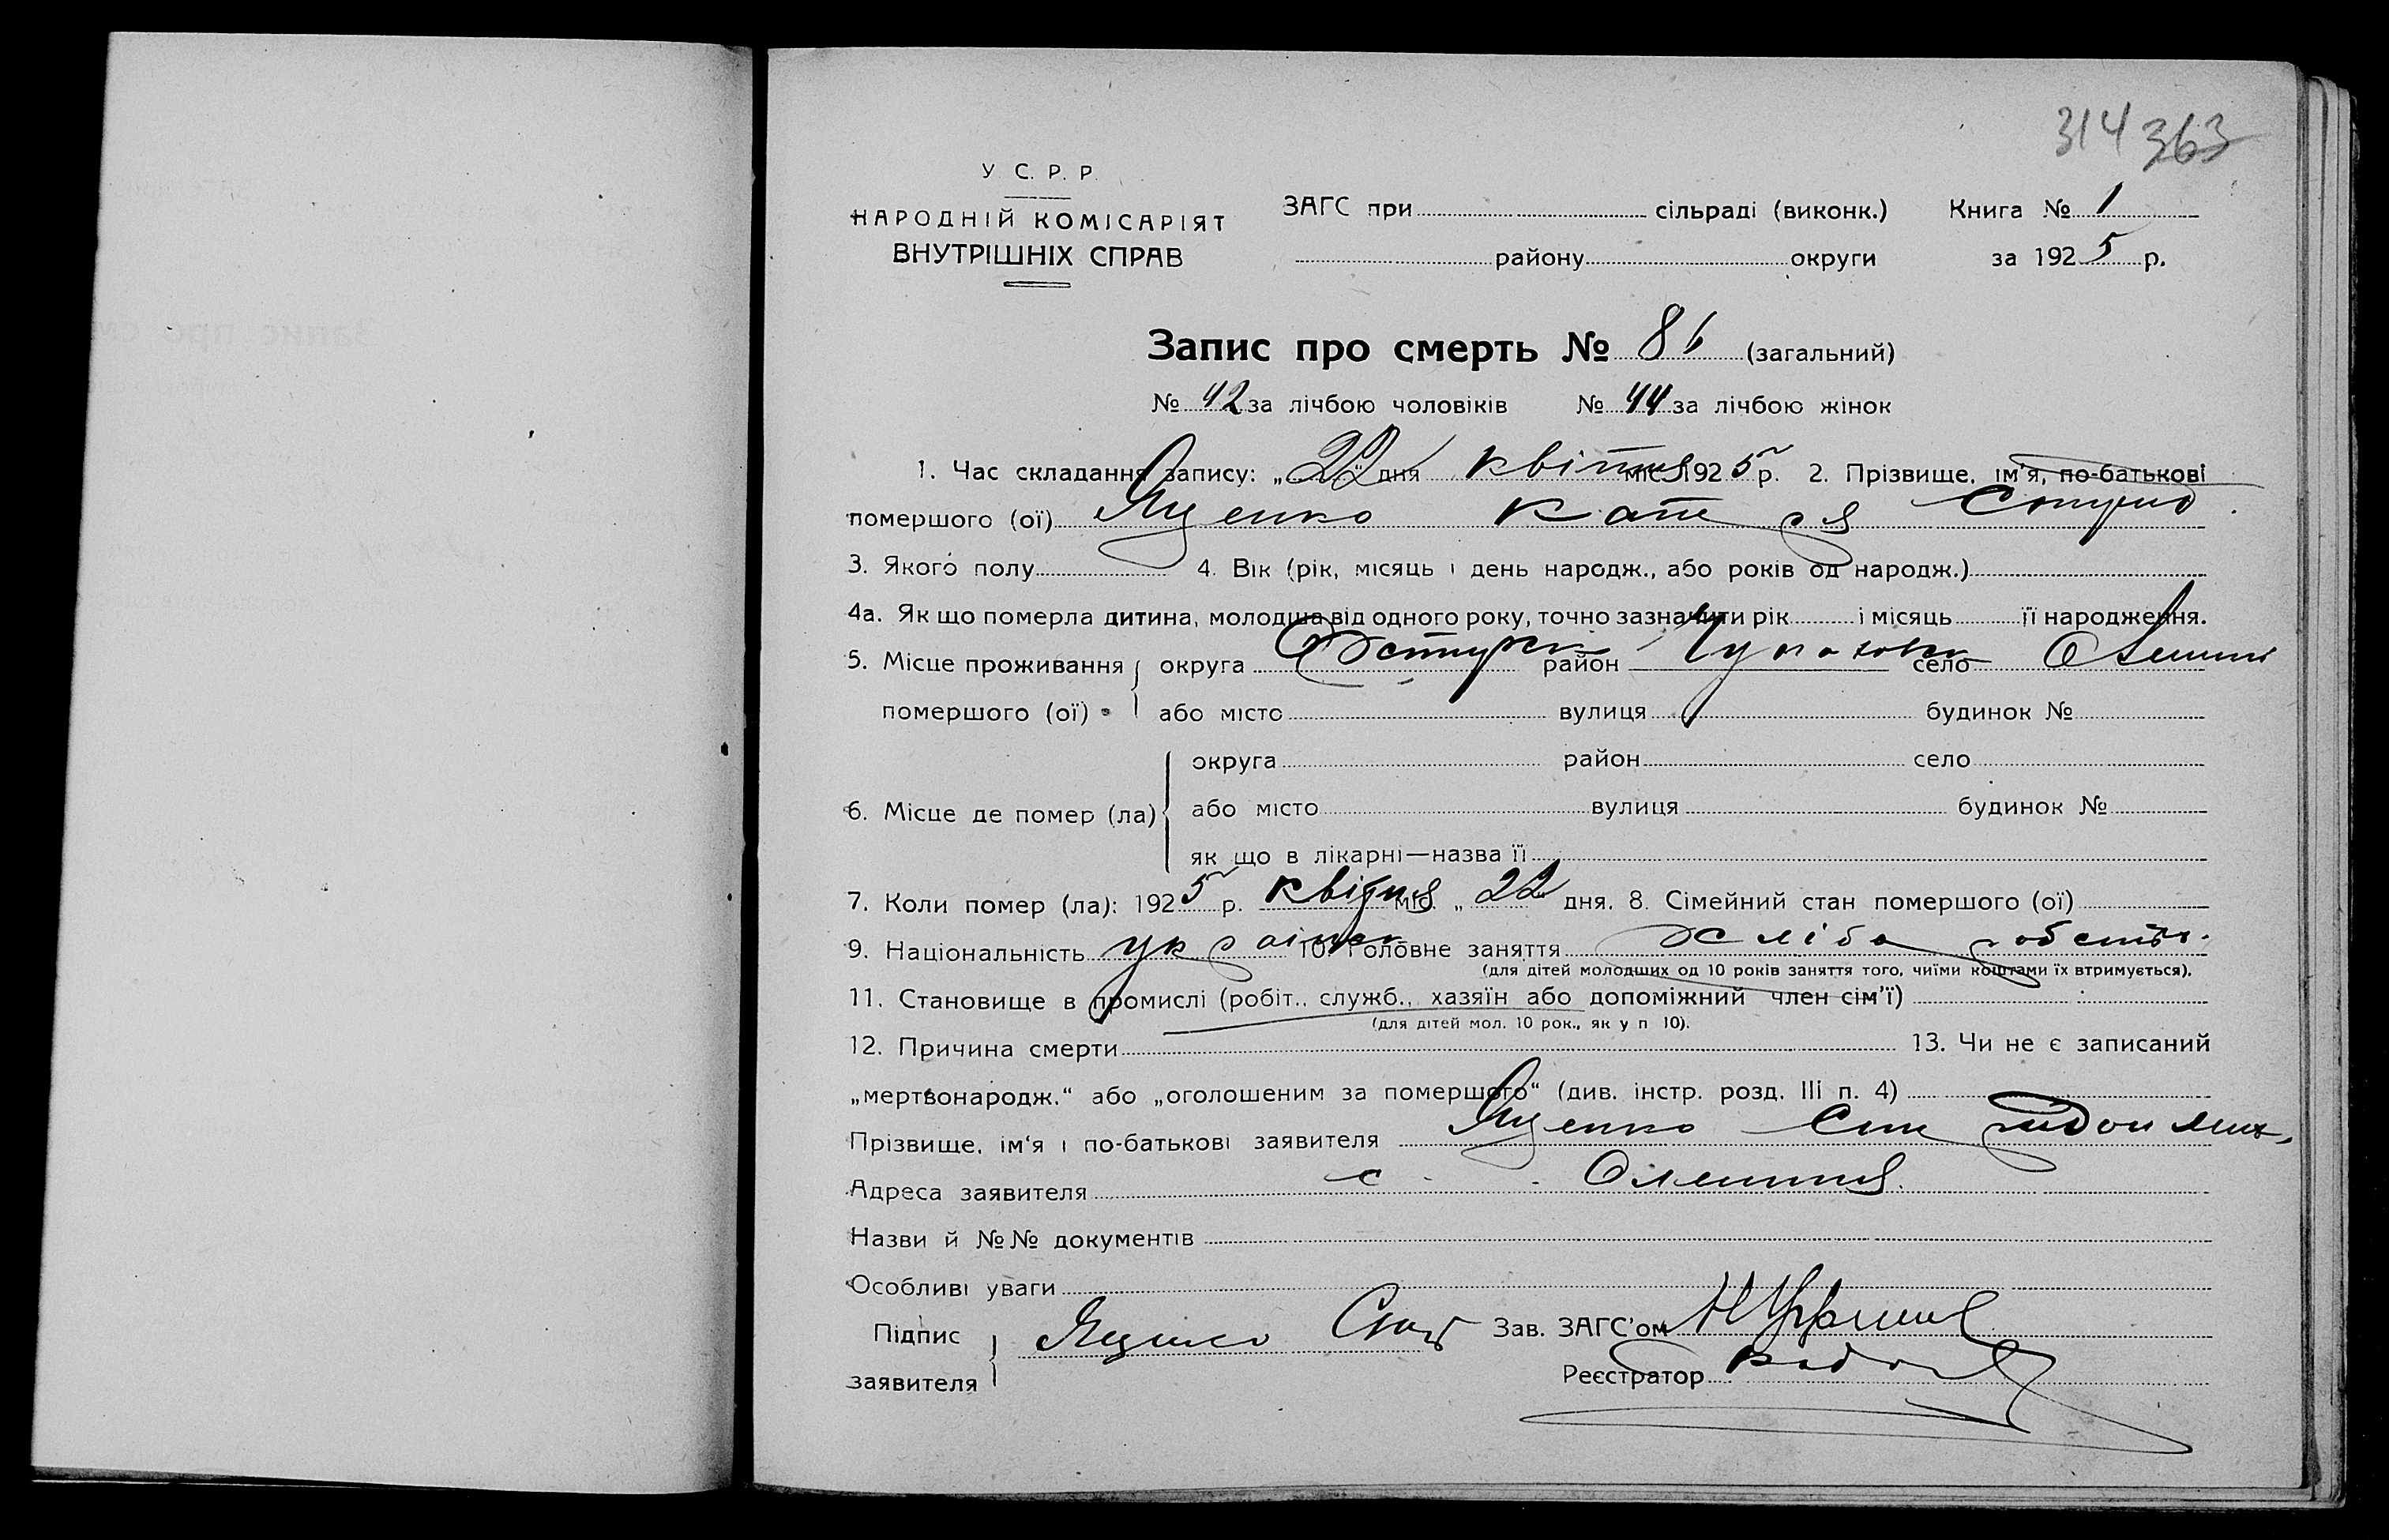 314 363
У С. Р. Р.
НАРОДНІЙ КОМІСАРІЯТ
ВНУТРІШНІХ СПРАВ
ЗАГС при сільраді (виконк.) Книга № 1
району округи за 1925 р.
Запис про смерть № 86 (загальний)
№ 42 за лічбою чоловіків № 44 за лічбою жінок
1. Час складання запису: „22" дня квітня міс. 1925 р. 2. Прізвище, ім'я, по-батькові
помершого (ої) Яценко
3. Якого полу 4. Вік (рік, місяць і день народж., або років од народж.)
4а. Як що померла дитина, молодша від одного року, точно зазначити рік і місяць її народження.
5. Місце проживання округа район село
помершого (ої) або місто вулиця будинок №
округа район село
6. Місце де помер (ла) або місто вулиця будинок №
як що в лікарні—назва її
7. Коли помер (ла): 1925 р. квітня міс. „22" дня. 8. Сімейний стан помершого (ої)
9. Національність 10. Головне заняття хлібо
(для дітей молодших од 10 років заняття того, чиїми коштами їх втримується).
11. Становище в промислі (робіт., служб., хазяїн або допоміжний член сім'ї)
(для дітей мол. 10 рок., як у п 10).
12. Причина смерти 13. Чи не є записаний
„мертвонародж." або „оголошеним за помершого" (див. інстр. розд. III п. 4)
Прізвище, ім'я і по-батькові заявителя Яценко
Адреса заявителя с.
Назви й №№ документів
Особливі уваги
Підпис
заявителя Яценко
Зав. ЗАГС'ом
Реєстратор